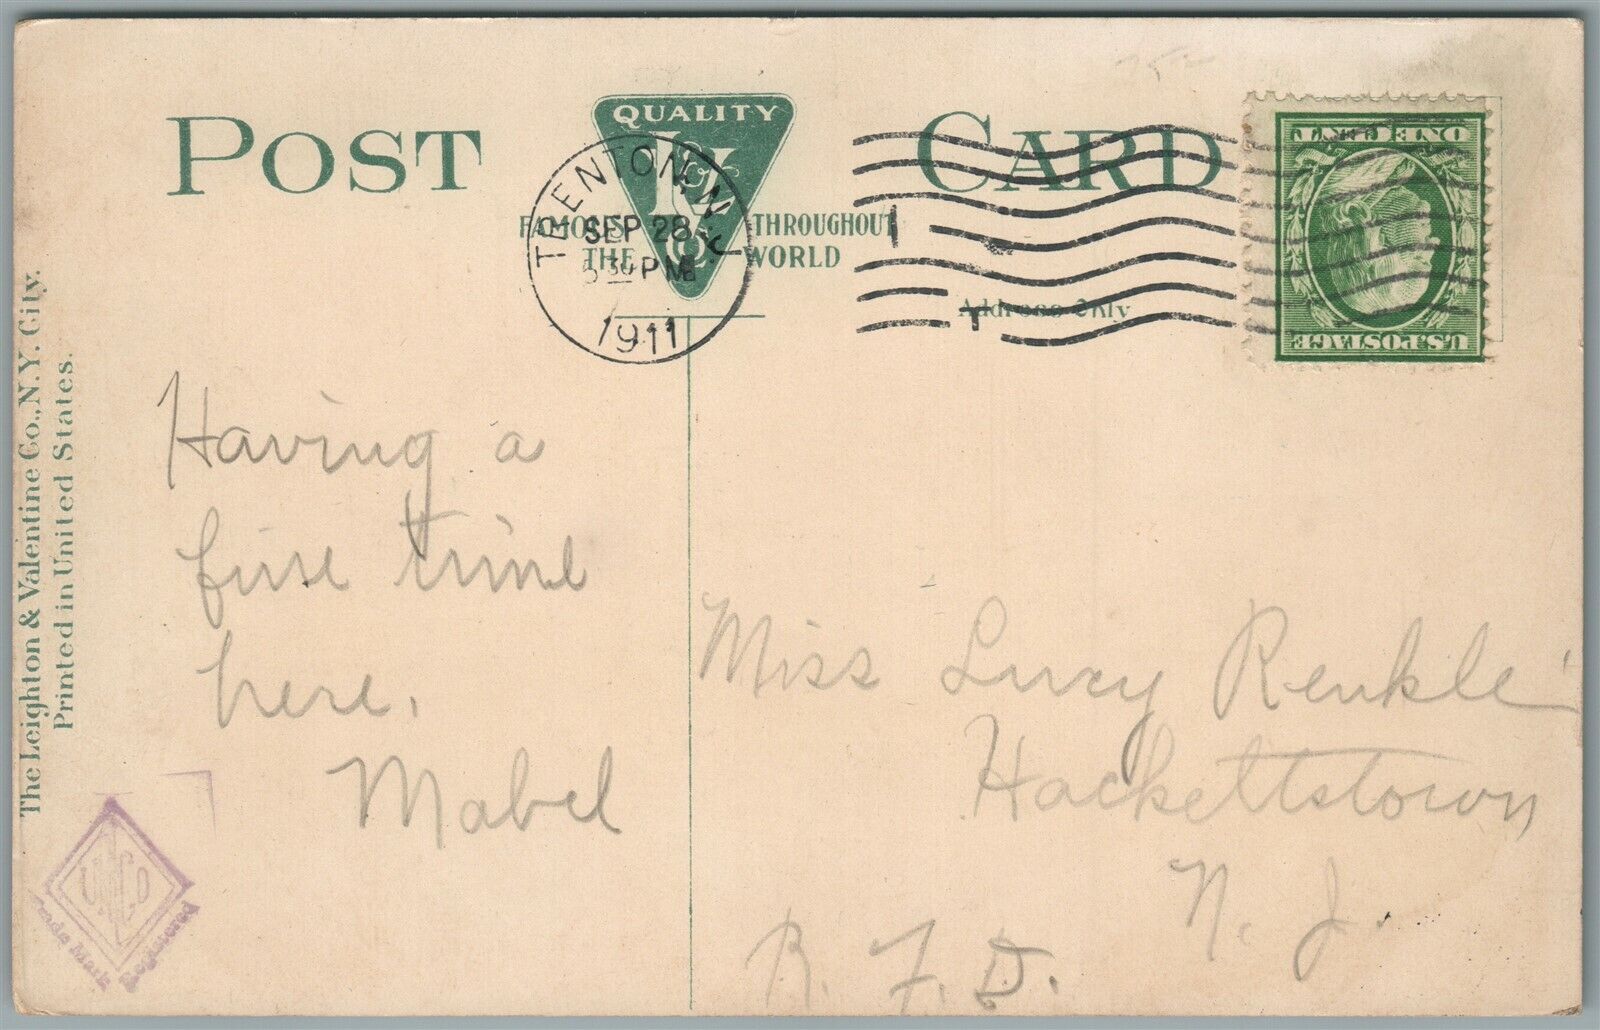 POST CARD
QUALITY
L&V Co
FAMOUS THROUGHOUT
THE WORLD
TRENTON, N.J.
SEP 28
5 30 PM
1911
Address Only
ONE CENT
U.S. POSTAGE
The Leighton & Valentine Co., N.Y. City.
Printed in United States.
Having a
fine time
here.
Mabel
Miss Lucy Renkle
Hackettstown
N. J.
R. F. D.
Trade Mark Registered